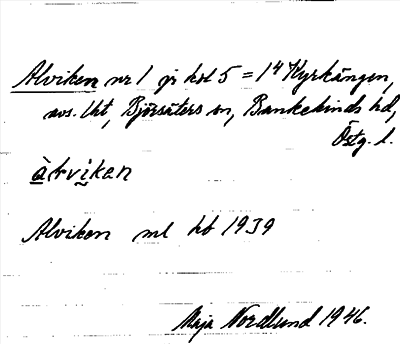 Alviken nr 1 jr hbl 5 = 1⁴ Kyrkängen,
avs. lht, Björsäters sn, Bankekinds hd,
Östg. l.
àlviken
Alviken ml hb 1939
Maja Nordlund 1946.